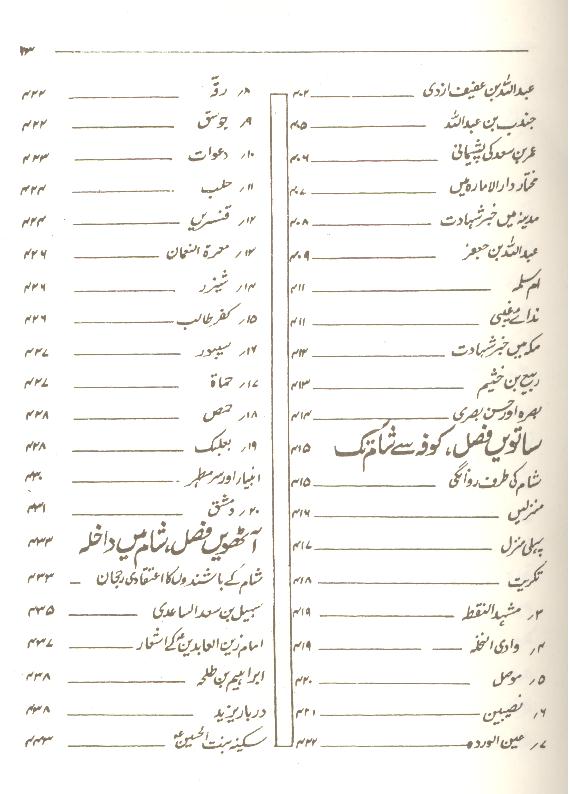 ۲۳
عبداللہ بن عفیف ازدی ۴۰۲
جندب بن عبداللہ ۴۰۵
عمر بن سعد کی پشیمانی ۴۰۶
مختار دار الامارہ میں ۴۰۷
مدینہ میں خبر شہادت ۴۰۸
عبداللہ بن جعفر ۴۰۹
ام سلمہ ۴۱۱
ندائے غیبی ۴۱۱
مکہ میں خبر شہادت ۴۱۲
ربیع بن خثیم ۴۱۳
بصرہ اور حسن بصری ۴۱۴
ساتویں فصل، کوفہ سے شام تک ۴۱۵
شام کی طرف روانگی ۴۱۵
منزلیں ۴۱۶
پہلی منزل ۴۱۷
تکریت ۴۱۸
۳، مشہد النقطہ ۴۱۹
۴، وادی النخلہ ۴۱۹
۵، موصل ۴۲۰
۶، نصیبین ۴۲۱
۷، عین الوردہ ۴۲۲
۸، رقہ ۴۲۲
۹، جوسق ۴۲۲
۱۰، دعوات ۴۲۳
۱۱، حلب ۴۲۴
۱۲، قنسرین ۴۲۴
۱۳، معرۃ النعمان ۴۲۶
۱۴، شیزر ۴۲۶
۱۵، کفر طالب ۴۲۶
۱۶، سیبور ۴۲۷
۱۷، حماۃ ۴۲۷
۱۸، حمص ۴۲۸
۱۹، بعلبک ۴۲۸
انبیاء اور سر مطہر ۴۳۰
۲۰، دمشق ۴۳۱
آٹھویں فصل، شام میں داخلہ ۴۳۳
شام کے باشندوں کا اعتقادی رجحان ۴۳۳
سہیل بن سعد الساعدی ۴۳۵
امام زین العابدینؑ کے اشعار ۴۳۷
ابراہیم بن طلحہ ۴۳۸
دربار یزید ۴۳۸
سکینہ بنت الحسینؑ ۴۴۳